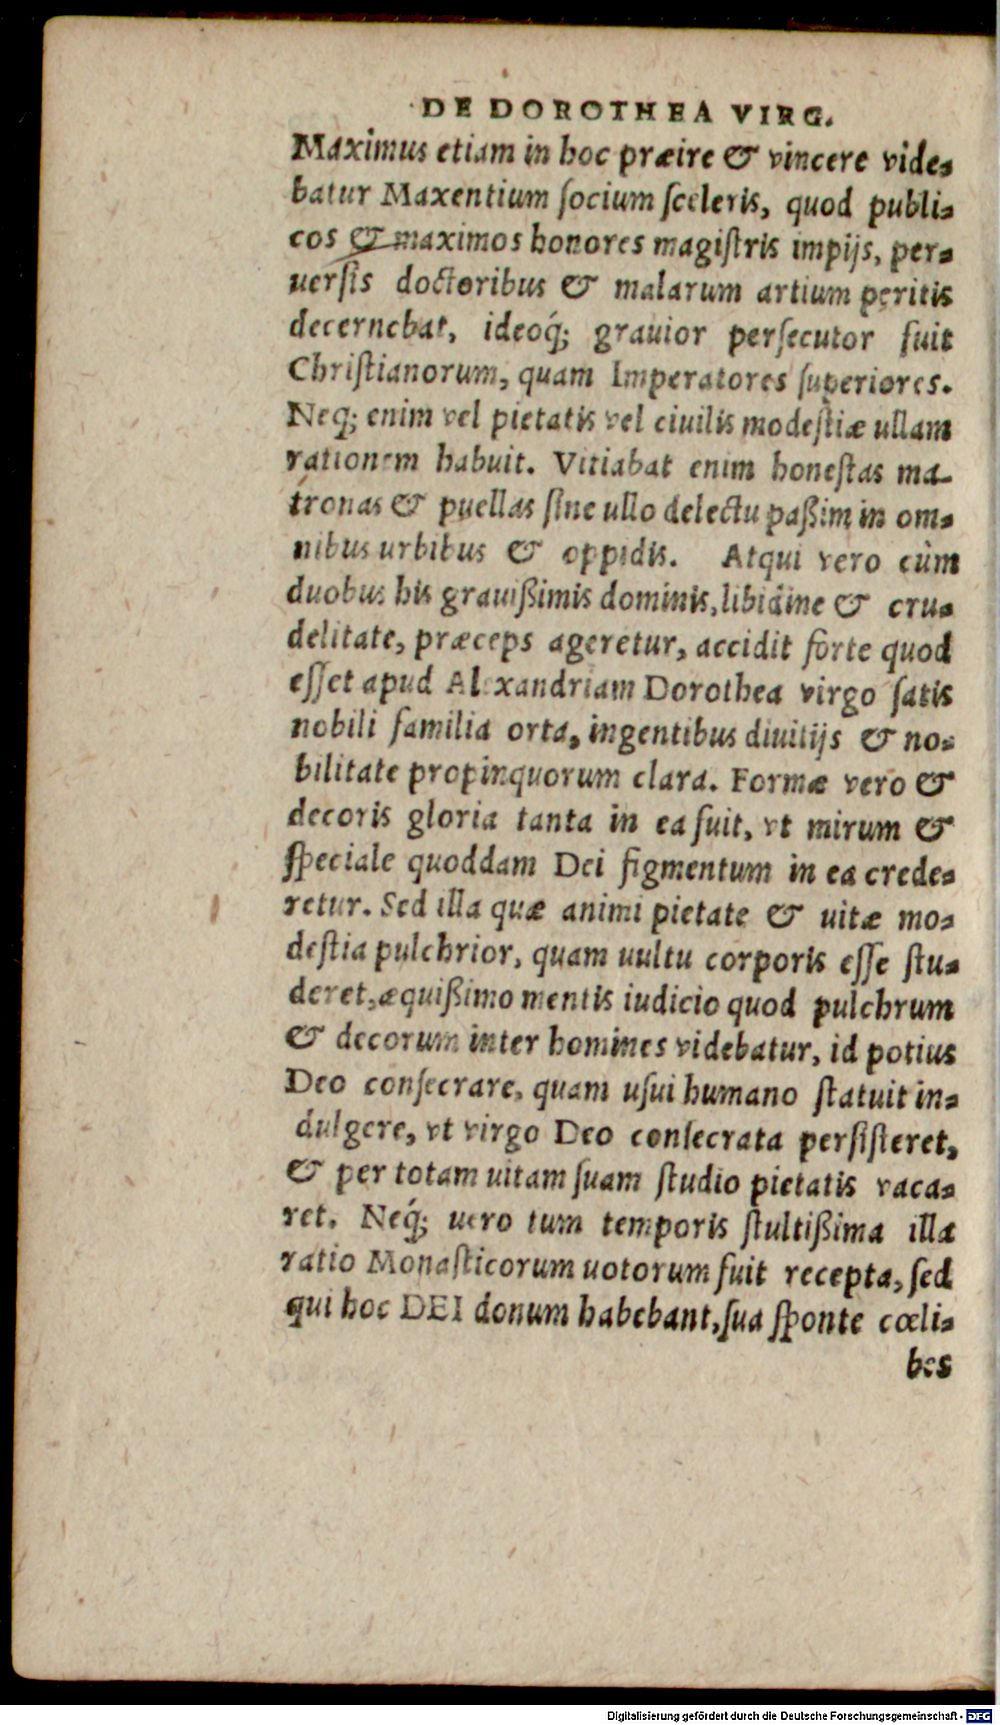 DE DOROTHEA VIRG.
Maximus etiam in hoc præire & vincere vide-
batur Maxentium ſocium ſceleris, quod publi-
cos & maximos honores magiſtris impijs, per-
uerſis doctoribus & malarum artium peritis
decernebat, ideoq́; grauior perſecutor fuit
Chriſtianorum, quam Imperatores ſuperiores.
Neq; enim vel pietatis vel ciuilis modeſtiæ ullam
rationem habuit. Vitiabat enim honeſtas ma-
tronas & puellas ſine ullo delectu paßim in om-
nibus urbibus & oppidis. Atqui vero cùm
duobus his grauißimis dominis, libidine & cru-
delitate, præceps ageretur, accidit forte quod
eſſet apud Alexandriam Dorothea virgo ſatis
nobili familia orta, ingentibus diuitijs & no-
bilitate propinquorum clara. Formæ vero &
decoris gloria tanta in ea fuit, vt mirum &
ſpeciale quoddam Dei figmentum in ea crede-
retur. Sed illa quæ animi pietate & uitæ mo-
deſtia pulchrior, quam uultu corporis eſſe ſtu-
deret, æquißimo mentis iudicio quod pulchrum
& decorum inter homines videbatur, id potius
Deo conſecrare, quam uſui humano ſtatuit in-
dulgere, vt virgo Deo conſecrata perſiſteret,
& per totam uitam ſuam ſtudio pietatis vaca-
ret. Neq́; uero tum temporis ſtultißima illa
ratio Monaſticorum uotorum fuit recepta, ſed
qui hoc DEI donum habebant, ſua ſponte cœli-
bes
Digitalisierung gefördert durch die Deutsche Forschungsgemeinschaft - DFG